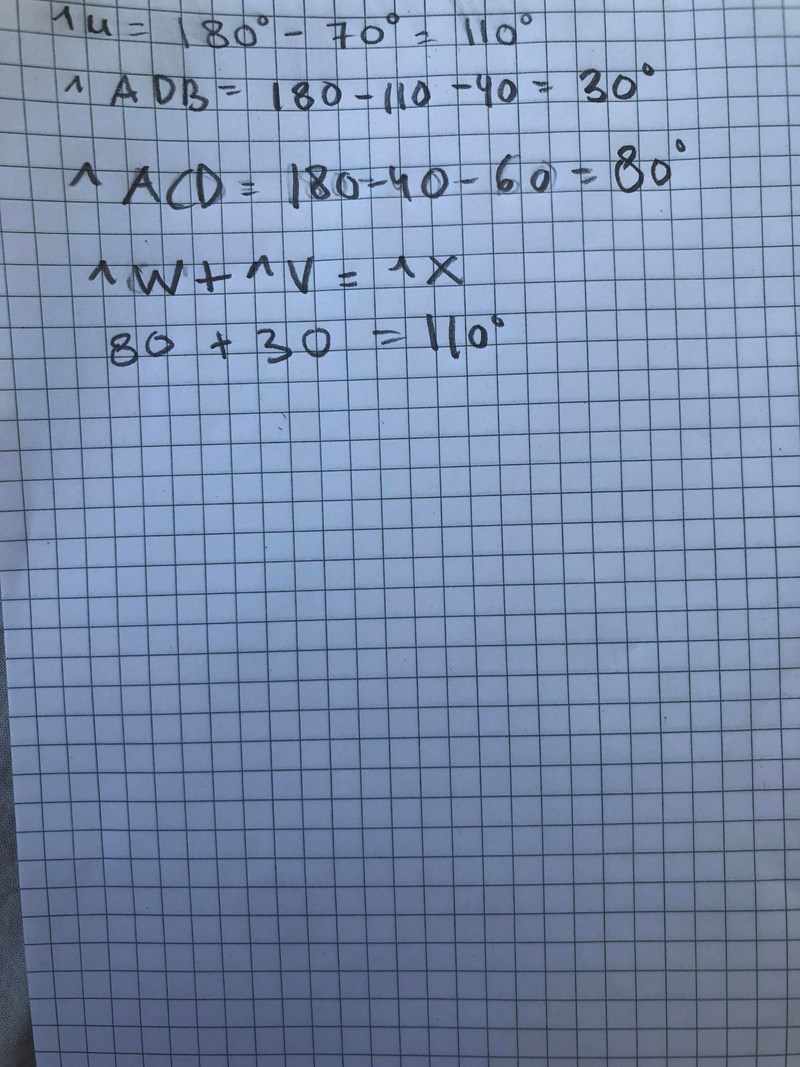 ^u = 180° - 70° = 110°
^ ADB = 180 - 110 - 40 = 30°
^ ACD = 180 - 40 - 60 = 80°
^W + ^V = ^X
80 + 30 = 110°